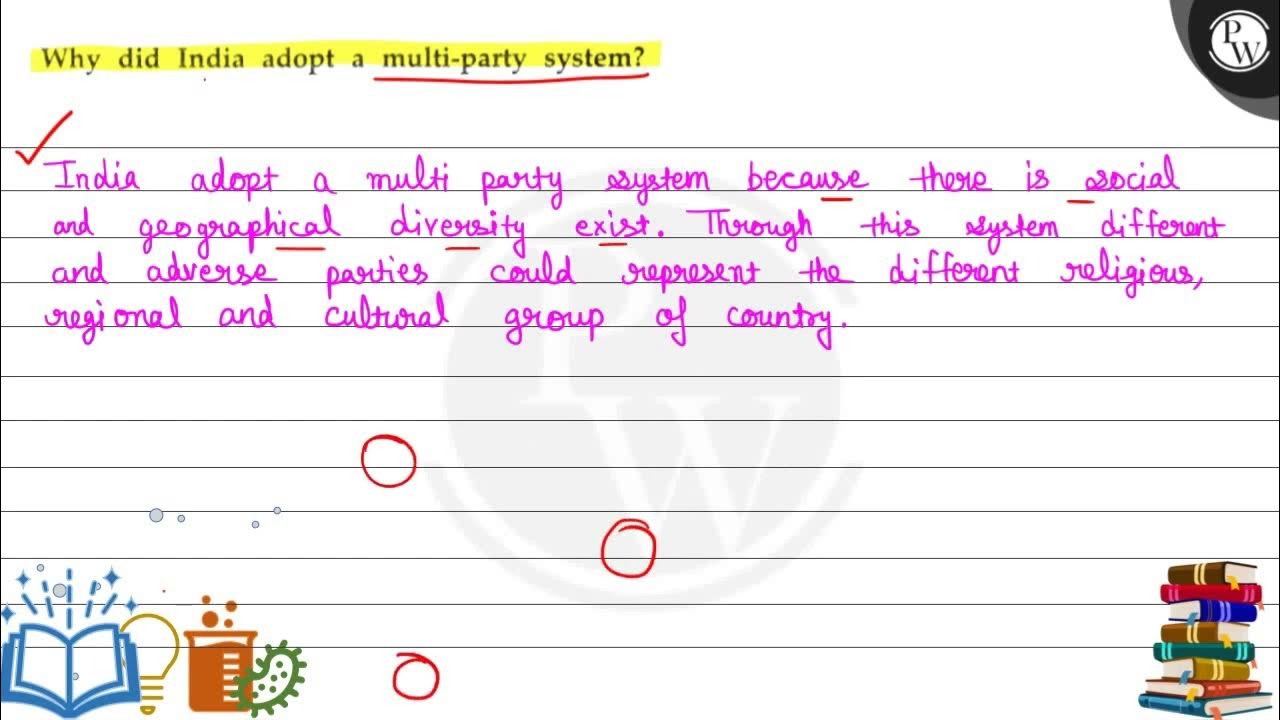 Why did India adopt a multi-party system?
PW
India adopt a multi party system because there is social
and geographical diversity exist. Through this system different
and adverse parties could represent the different religious,
regional and cultural group of country.
PW